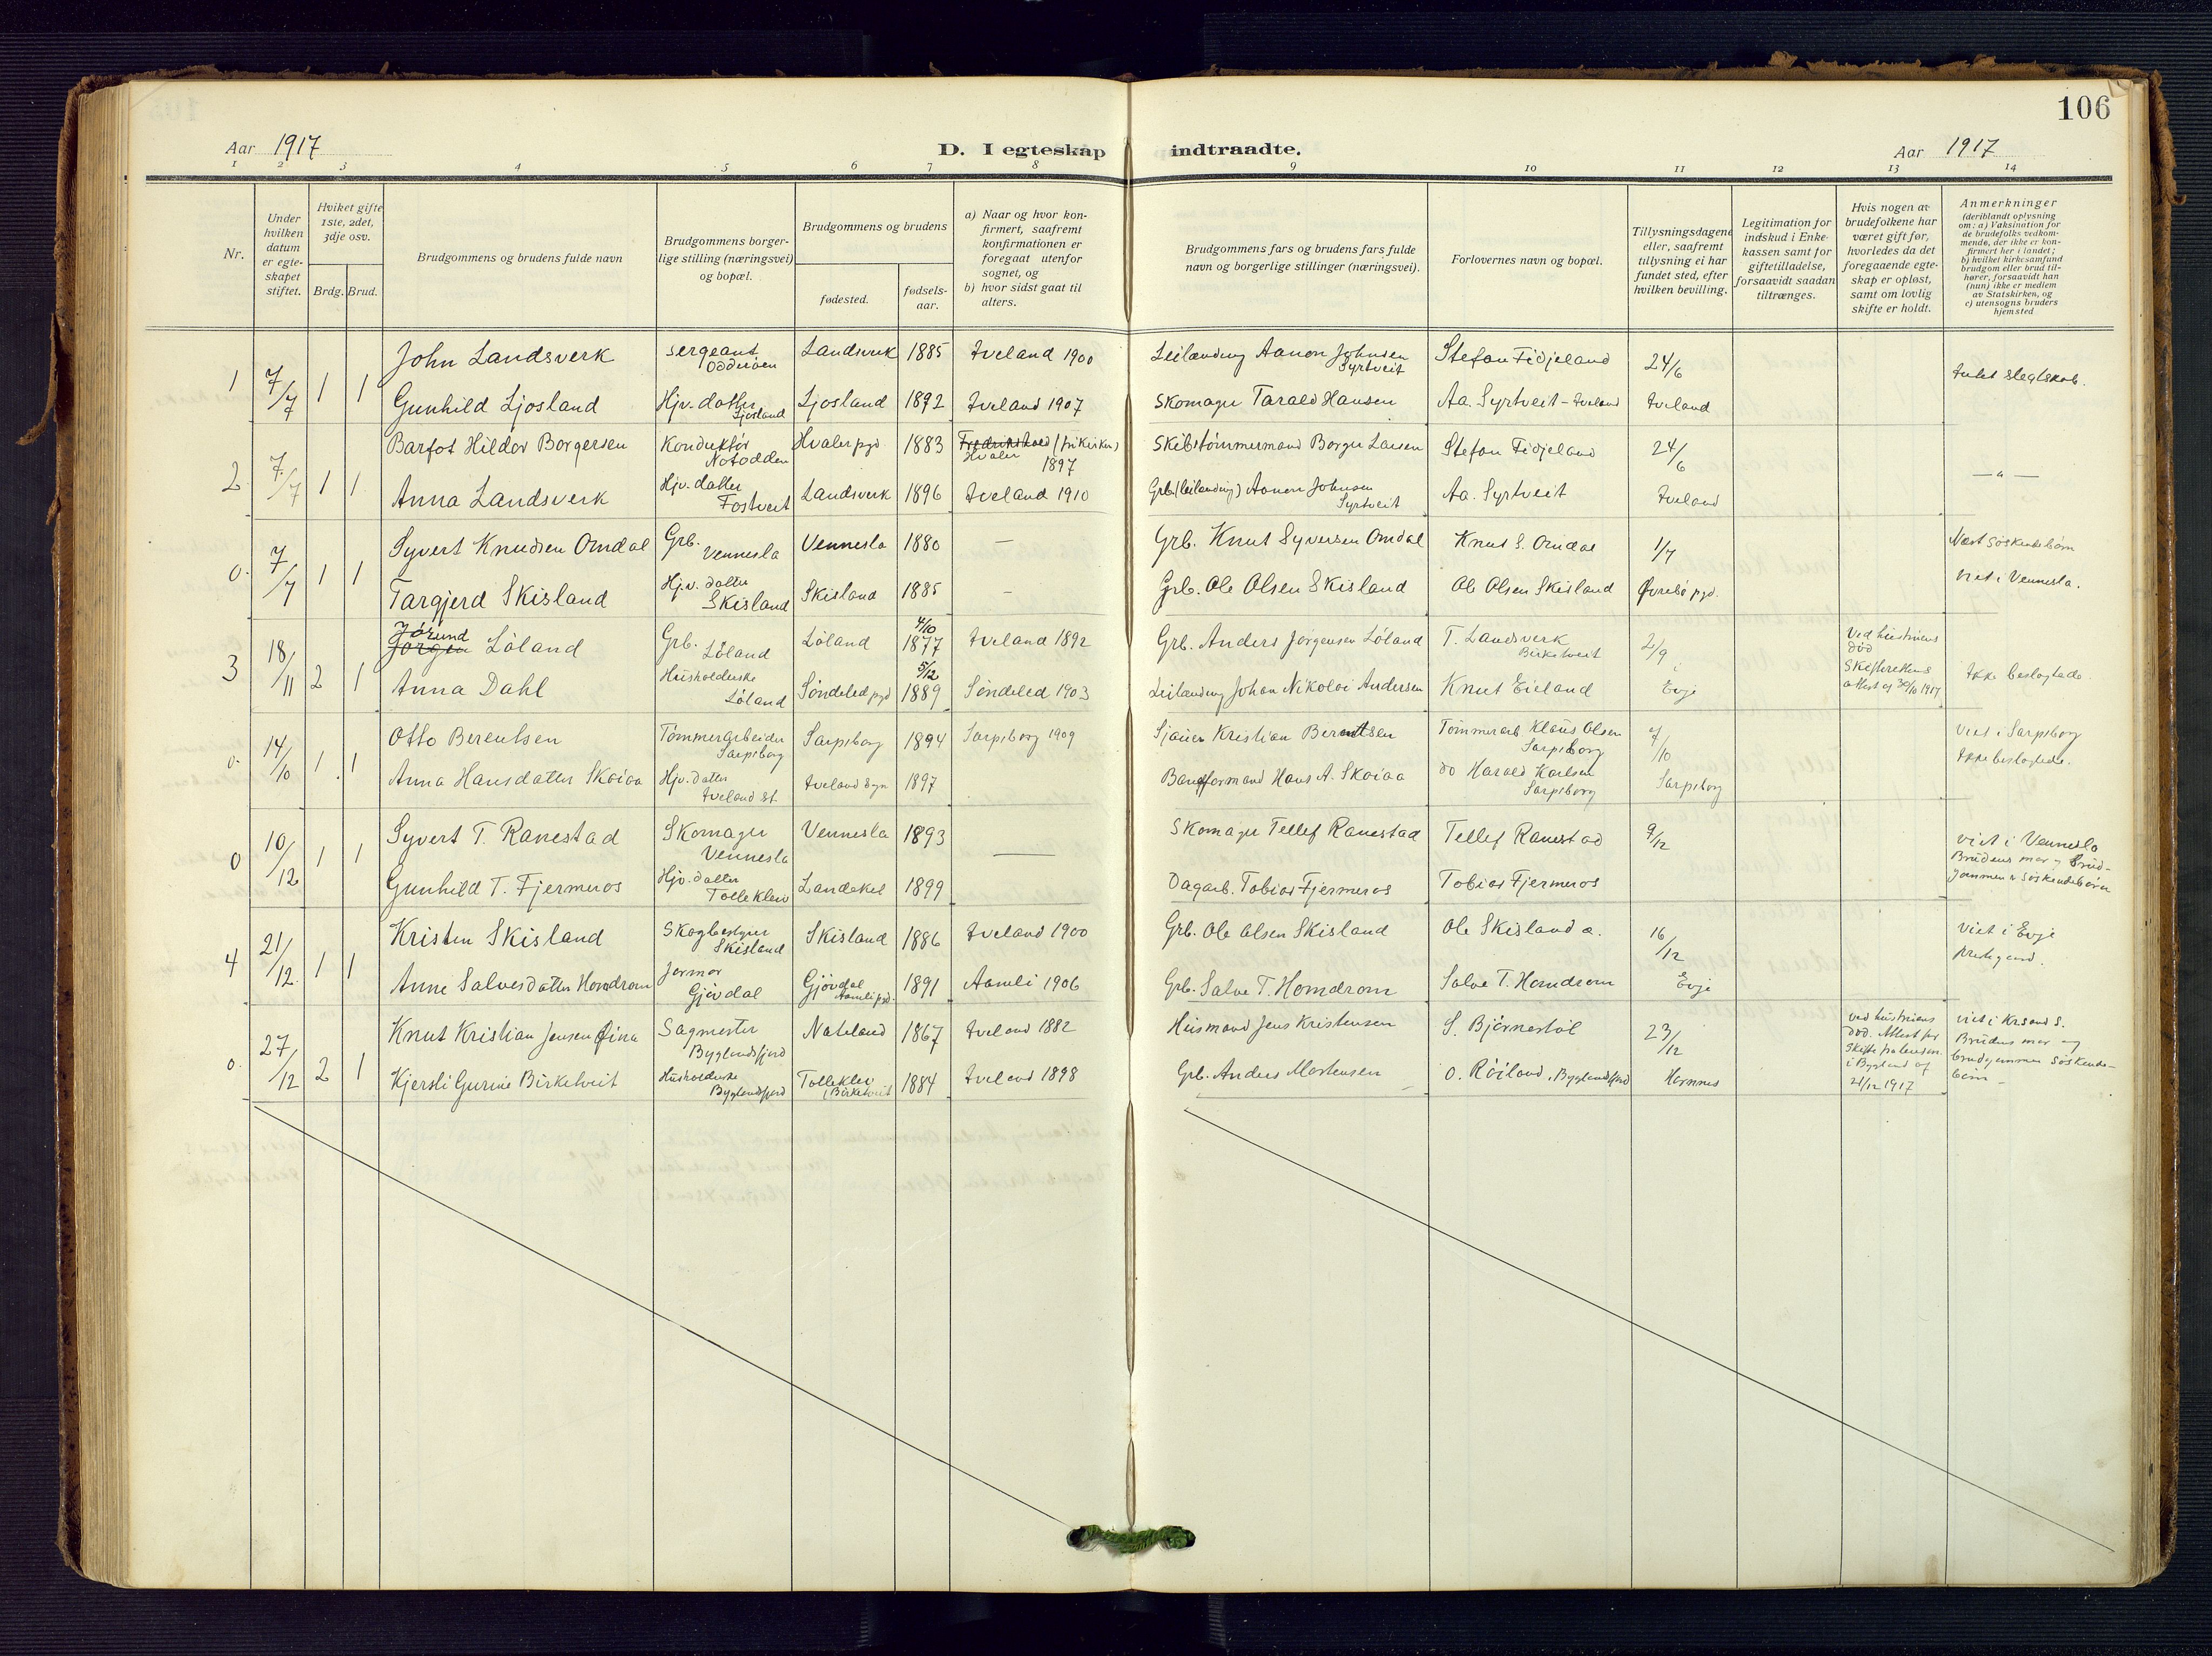 106
Aar 1917
D. I egteskap indtraadte.
Aar 1917
1 2 3 4 5 6 7 8 9 10 11 12 13 14
Nr.
Under hvilken datum er egteskapet stiftet.
Hviket gifte 1ste, 2det, 3dje osv.
Brdg. Brud.
Brudgommens og brudens fulde navn
Brudgommens borgerlige stilling (næringsvei) og bopæl.
Brudgommens og brudens
fødested.
fødselsaar.
a) Naar og hvor konfirmert, saafremt konfirmationen er foregaat utenfor sognet, og
b) hvor sidst gaat til alters.
Brudgommens fars og brudens fars fulde navn og borgerlige stillinger (næringsvei).
Forlovernes navn og bopæl.
Tillysningsdagene eller, saafremt tillysning ei har fundet sted, efter hvilken bevilling.
Legitimation for indskud i Enkekassen samt for giftetilladelse, forsaavidt saadan tiltrænges.
Hvis nogen av brudefolkene har været gift før, hvorledes da det foregaaende egteskap er opløst, samt om lovlig skifte er holdt.
Anmerkninger
(deriblandt oplysning om: a) Vaksination for de brudefolks vedkommende, der ikke er konfirmert her i landet; b) hvilket kirkesamfund brudgom eller brud tilhører, forsaavidt han (hun) ikke er medlem av Statskirken, og c) utensogns bruders hjemsted
1 7/7 1 1 John Landsverk Sergeant Odderøen Landsverk 1885 Iveland 1900 Leilending Aanon Johnsen Syrtveit Stefan Fidjeland 24/6 Intet slegtskab.
Gunhild Ljosland Hjv. datter Ljosland Ljosland 1892 Iveland 1907 Skomager Tarald Hansen Aa. Syrtveit - Iveland Iveland
2 7/7 1 1 Barfot Hildor Borgersen Konduktør Notodden Hvaler pgd 1883 Fredrikshald (frikirken) Hvaler 1897 Skibstømmermand Borger Larsen Stefan Fidjeland 24/6 — " —
Anna Landsverk Hjv. datter Fostveit Landsverk 1896 Iveland 1910 Grb. (leilending) Aanon Johnsen Syrtveit Aa. Syrtveit Iveland
0. 7/7 1 1 Syvert Knudsen Omdal Grb. Vennesla Vennesla 1880 — Grb. Knut Syversen Omdal Knut S. Omdal 1/7 Næstsøskendebørn
Targjerd Skisland Hjv. datter Skisland Skisland 1885 — Grb. Ole Olsen Skisland Ole Olsen Skisland Øvrebø pgd. viet i Vennesla.
3 18/11 2 1 Jørund Jørgen Løland Grb. Løland Løland 4/10 1877 Iveland 1892 Grb. Anders Jørgensen Løland T. Landsverk Birketveit 2/9 Ved hustruens død Skifterettens attest af 30/10 1917 Ikke beslegtede.
Anna Dahl Husholderske Løland Søndeled pgd 5/12 1889 Søndeled 1903 Leilending Johan Nikolai Andersen Knut Eieland Evje
0. 14/10 1 1 Otto Berentsen Tømmerarbeider Sarpsborg Sarpsborg 1894 Sarpsborg 1909 Sjauer Kristian Berntsen Tømmerarb Klaus Olsen Sarpsborg 7/10 viet i Sarpsborg
Anna Hansdatter Skaiaa Hjv. datter Iveland st. Iveland sgn 1897 Baneformand Hans A. Skaiaa do Harald Karlsen Sarpsborg Sarpsborg Ikke beslegtede.
0 10/12 1 1 Syvert T. Ranestad Skomager Vennesla Vennesla 1893 — Skomager Tellef Ranestad Tellef Ranestad 9/12 viet i Vennesla
Gunhild T. Fjermeros Hjv. datter Tolleklev Landekel 1899 Dagarb. Tobias Fjermeros Tobias Fjermeros Brudens mor og Brudgommen er søskendebørn
4 21/12. 1 1 Kristen Skisland Skogbestyrer Skisland Skisland 1886 Iveland 1900 Grb. Ole Olsen Skisland Ole Skisland 16/12 Viet i Evje prestegaard.
Anne Salvesdatter Homdrom Jormor Gjøvdal Gjøvdal Aamli pgd. 1891 Aamli 1906 Grb. Salve T. Homdrom Salve T. Homdrom Evje
0. 27/12 2 1 Knut Kristian Jensen Øina Sagmester Byglandsfjord Nateland 1867 Iveland 1882 Husmand Jens Kristensen S. Bjørnestøl 23/12 ved hustruens død. Attest for Skifte i Bygland af 21/12 1917 viet i Krsand S.
Kjersti Gurine Birketveit Husholderske Byglandsfjord Tolleklev (Birketveit 1884 Iveland 1898 Grb. Anders Mortensen O. Røiland, Byglandsfjord Hornnes Brudens mor og brudgommen søskendebørn -